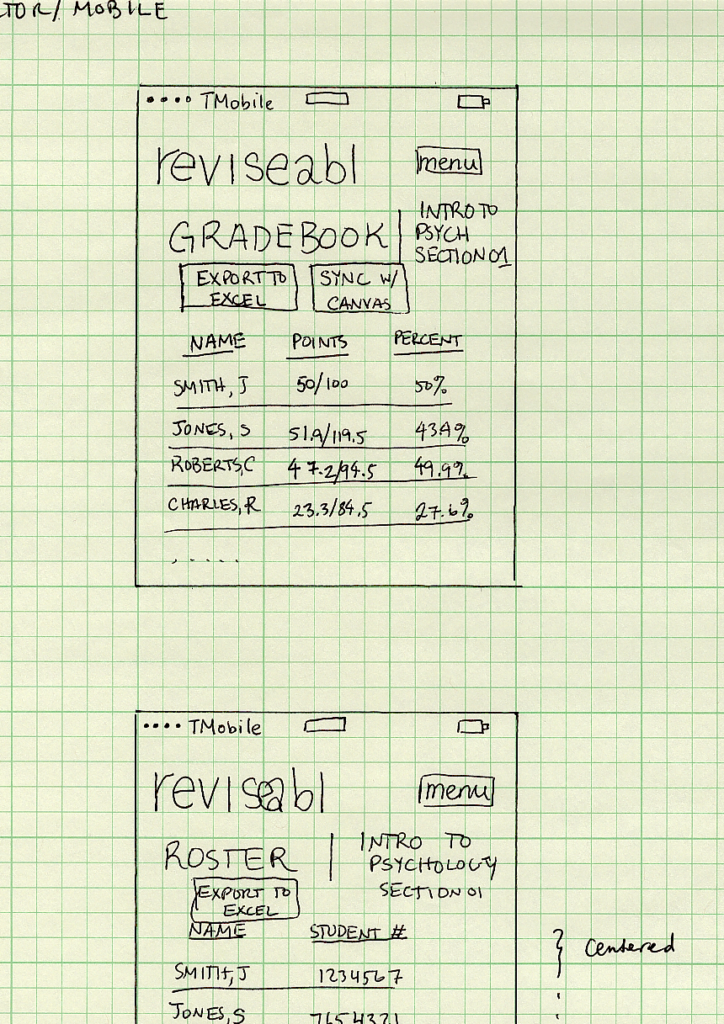 TOR/ MOBILE
TMobile
reviseabl menu
GRADEBOOK
INTRO TO
PSYCH
SECTION 01
EXPORT TO
EXCEL
SYNC W/
CANVAS
NAME POINTS PERCENT
SMITH, J 50/100 50%
JONES, S 51.9/119.5 43.4%
ROBERTS, C 47.2/94.5 49.9%
CHARLES, R 23.3/84.5 27.6%
. . . . . .
TMobile
reviseabl menu
ROSTER
INTRO TO
PSYCHOLOGY
SECTION 01
EXPORT TO
EXCEL
NAME STUDENT #
SMITH, J 1234567
JONES, S 7654321
} Centered